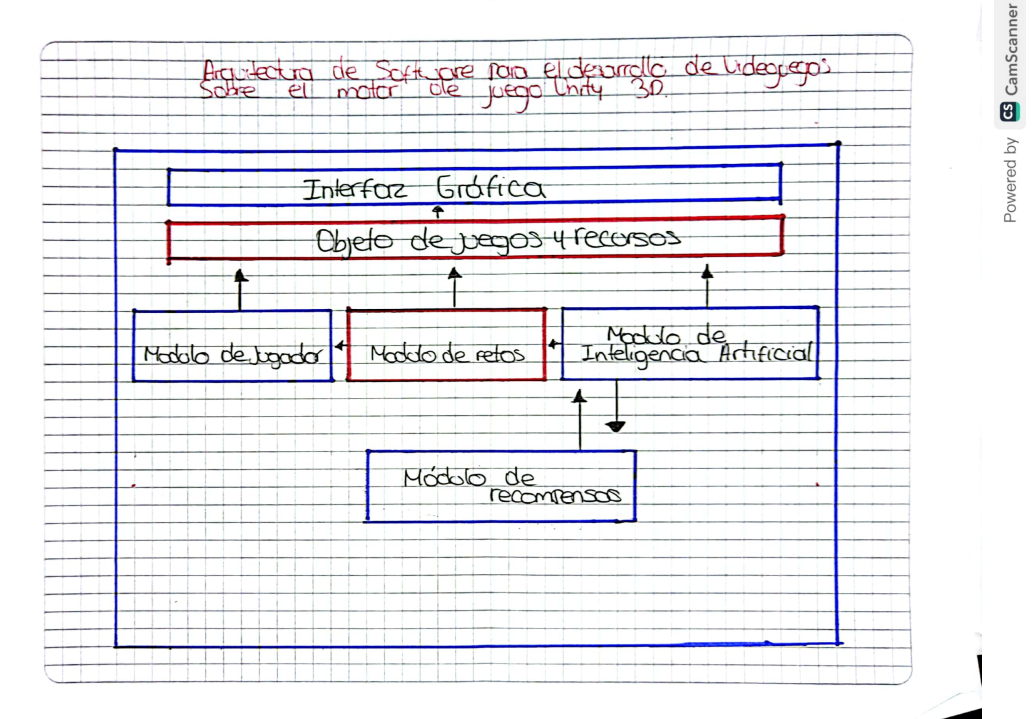 Arquitectura de Software para el desarrollo de Videojuegos
Sobre el motor de juego Unity 3D.
Interfaz Gráfica
Objeto de juegos y recursos
Modulo de Jugador
Modulo de retos
Modulo de
Inteligencia Artificial
Módulo de
recompensas
Powered by CS CamScanner